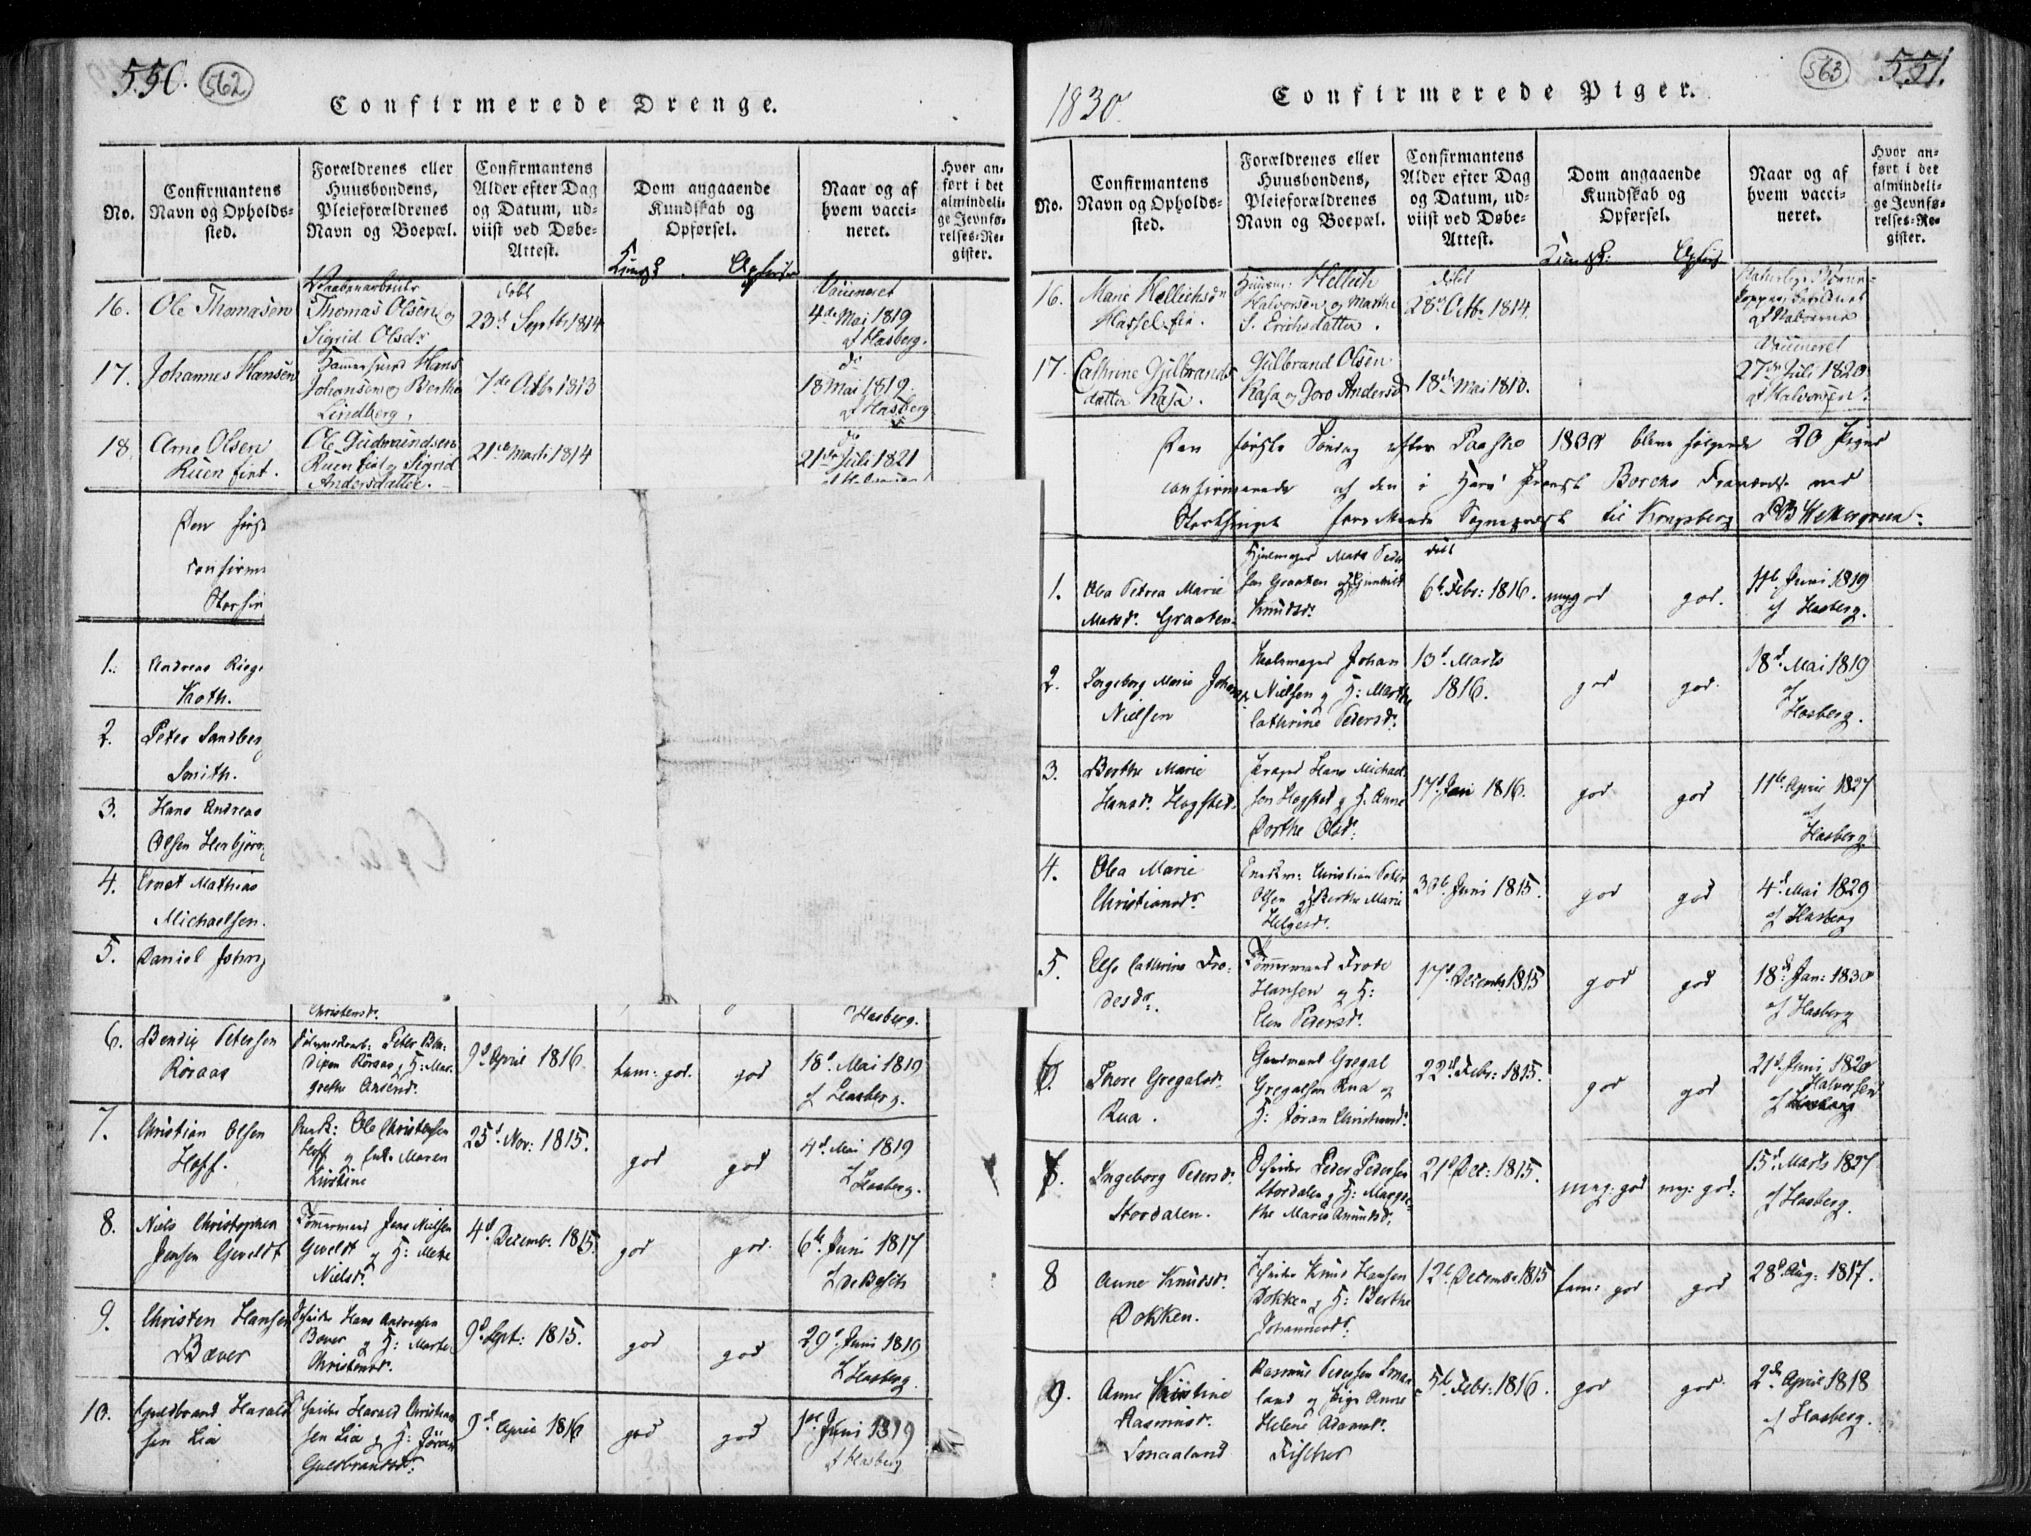 550. 562
Confirmerede Drenge.
No.
Confirmantens
Navn og Opholds-
sted.
Forældrenes eller
Huusbondens,
Pleieforældrenes
Navn og Boepæl.
Confirmantens
Alder efter Dag
og Datum, ud-
viist ved Døbe-
Attest.
Dom angaaende
Kundskab og
Opførsel.
Naar og af
hvem vacci-
neret.
Hvor an-
ført i det
almindeli-
ge Jevnfø-
relses-Re-
gister.
16. Ole Thomasen
Thomas Olsen og
Sigrid Olsdr
født
23d Septbr 1814
Vaccineret
4de Mai 1819
af Hasberg.
17. Johannes Hansen
Hans
Johansen og Berthe
Lindberg.
7de Octbr 1813
do
18 Mai 1819
af Hasberg
18. Arne Olsen
Ruen fint.
Ole Gudmundsen
Ruen fint og Sigrid
Andersdatter.
21de Marti 1814
do
21de Juli 1821
Den først
confirm
Storthin
1. Andreas
Koth.
2. Peter Sandberg
Smith.
3. Hans Andreas
Olsen
4. Ernst Mathias
Michaelsen.
5. Daniel
Christensdr.
Hasberg.
6. Bendix Petersen
Roraas
Peter Ben-
dixen Roraas og H: Mar-
grethe
9d April 1816
tem: god.
god
18d Mai 1819
af Hasberg.
7. Christian Olsen
Hoff.
Ole Christensen
Hoff og Maren
Kirstine
25d Nov: 1815.
god
god
4d Mai 1819
af Hasberg.
8. Niels Christopher
Jensen Geveldt
Tømmermand Jens Nielsen
Geveldt og H: Mette
Nielsdr.
4d Decemb. 1815.
god
god.
6te Juni 1817
af
9. Christen Hansen
Bæver
Hans Andersen
Bæver og H: Marthe
Christensdr.
9d Sept: 1815.
god
god
29d Juni 1819
af Hasberg.
10. Guldbrand Harald
sen Lia
Harald Christian
sen Lia og H: Jøran
Guldbrandsdr.
9d April 1816
god
god
1ste Juni 1819
af Hasberg
1830
Confirmerede Piger.
563 551.
No.
Confirmantens
Navn og Opholds-
sted.
Forældrenes eller
Huusbondens,
Pleieforældrenes
Navn og Boepæl.
Confirmantens
Alder efter Dag
og Datum, ud-
viist ved Døbe-
Attest.
Dom angaaende
Kundskab og
Opførsel.
Naar og af
hvem vacci-
neret.
Hvor an-
ført i det
almindeli-
ge Jevnfø-
relses-Re-
gister.
16. Marie Hellichsdr
Hellich
Halvorsen og Marthe
S. Erichsdatter.
født
28de Octbr 1814.
17. Cathrine Gulbrands
datter Rasa.
Gulbrand Olsen
Rasa og Joro Andersd
18de Mai 1810.
Vaccineret
27de Juli 1820
af Halvorsen.
Den første Søndag efter Paaske 1830 bleve følgende 20 Piger
confirmerede af den i Herr Provst Borchs Fraværelse ved
Storthinget Sognepræst til Kongsberg
1. Oba Petrea Marie
Matsdr. Graaten.
Hjulmager Mats Peder
sen Graaten og Gunhild
Knudsdr.
født
6te Febr: 1816.
meg god
god.
11te Juni 1819
af Hasberg.
2. Ingeborg Marie Johans
Nielsen
Johan
Nielsen og H: Marthe
Cathrine Pedersdr.
13d Marts
1816.
god
god.
18d Mai 1819
af
Hasberg.
3. Berthe Marie
Hansdr. Hogsted.
Hans Michael
sen Hogsted og H. Anne
Dorthe Olsdr.
17d Jan 1816.
god
god
11te April 1827
af
Hasberg
4. Oba Marie
Christiansdr.
Christian Peter
Olsen og Berthe Marie
Helgesdr.
30te Juni 1815.
god
god
4d Mai 1829
af Hasberg
5. Else Cathrine Fro-
desdr.
Tømmermand Frode
Hansen og H:
Elen Pedersdr.
17d Decembr 1815
god
god
18d Jan: 1830
af Hasberg
Thore Gregalsdr.
Rua.
Gregal
Gregalsen Rua og
H: Jøran
22d Febr: 1815.
god
god
21d Juni 1820
Halvorsen
af
Ingeborg Pedersdr.
Stordalen.
Peder Pedersen
Stordalen og H: Margre-
the Marie
21d Dec: 1815.
meg: god
meg: god:
15d Marts 1827
af Hasberg.
8 Anne Knudsdr.
Dokken.
Knud Hansen
Dokken og H: Berthe
Johannesdr.
12te Decembr 1815
tem: god
god
28d Aug: 1817.
9. Anne Kirstine
Rasmusdr.
Smaaland
Rasmus Pedersen Smaa-
land og Pige Anne
Helene Adamsdr.
Fischer
5te Febr: 1816.
god
god.
2den April 1818
af Hasberg.